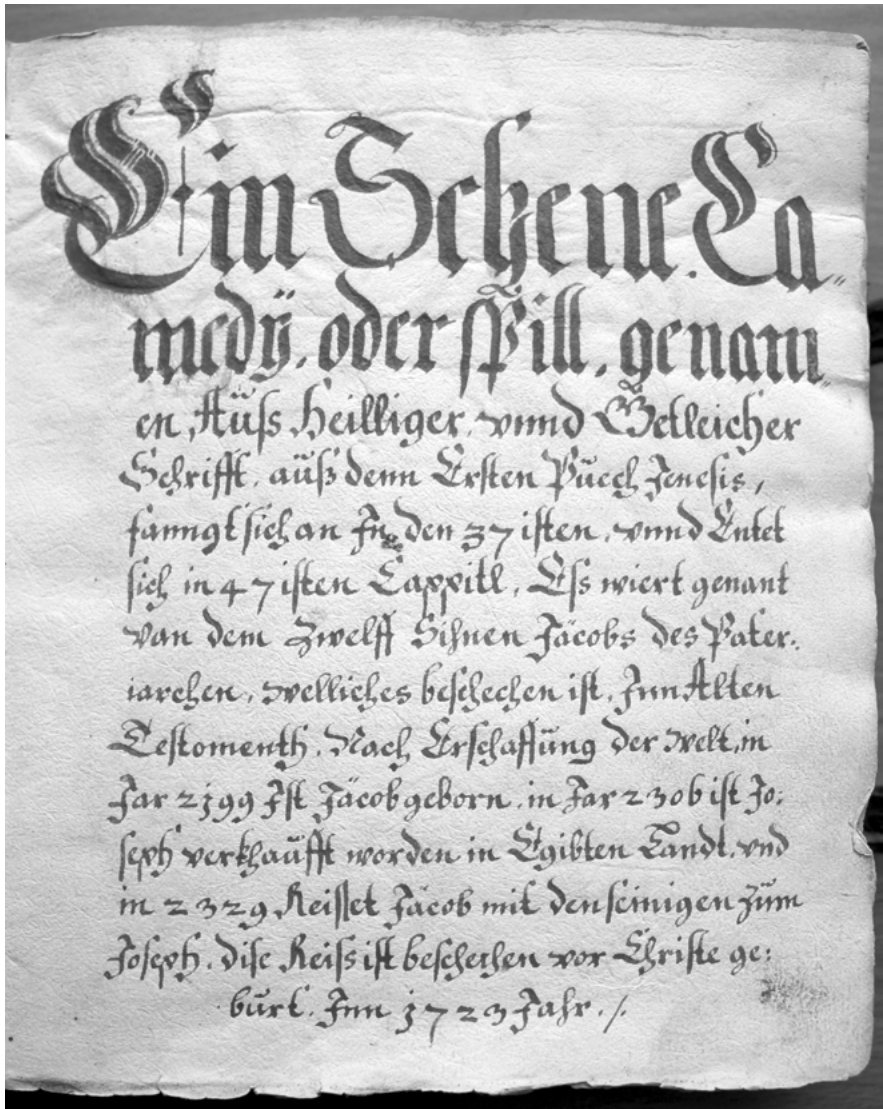 Ein Schene. Ca„
medÿ. oder spill. genam„
en, Aüss Heilliger. vnnd Getleicher
Schrifft. aüß denn Ersten Püech Jenesis,
fanngt sich an In den 37 isten, vnnd Entet
sich in 47 isten Cappitl, Ess wiert genant
Van dem Zwelff Sihnen Jäcobs des Pater:
iarchen, welliches beschechen ist, Jnn Alten
Testomenth. Nach Erschaffüng der welt, in
Jar 2199 Jst Jäcob geborn. in Jar 2306 ist Jo:
seph verkhaüfft worden in Egibten Landt. vnd
in 2329 Reisset Jäcob mit den seinigen züm
Joseph. dise Reiss ist beschechen vor Christe ge:
bürt. Jnn 1723 Jahr. /.